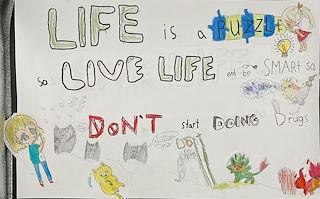 LIFE is a PUZZLE
so LIVE LIFE and be SMART so
DON'T start DOING Drugs